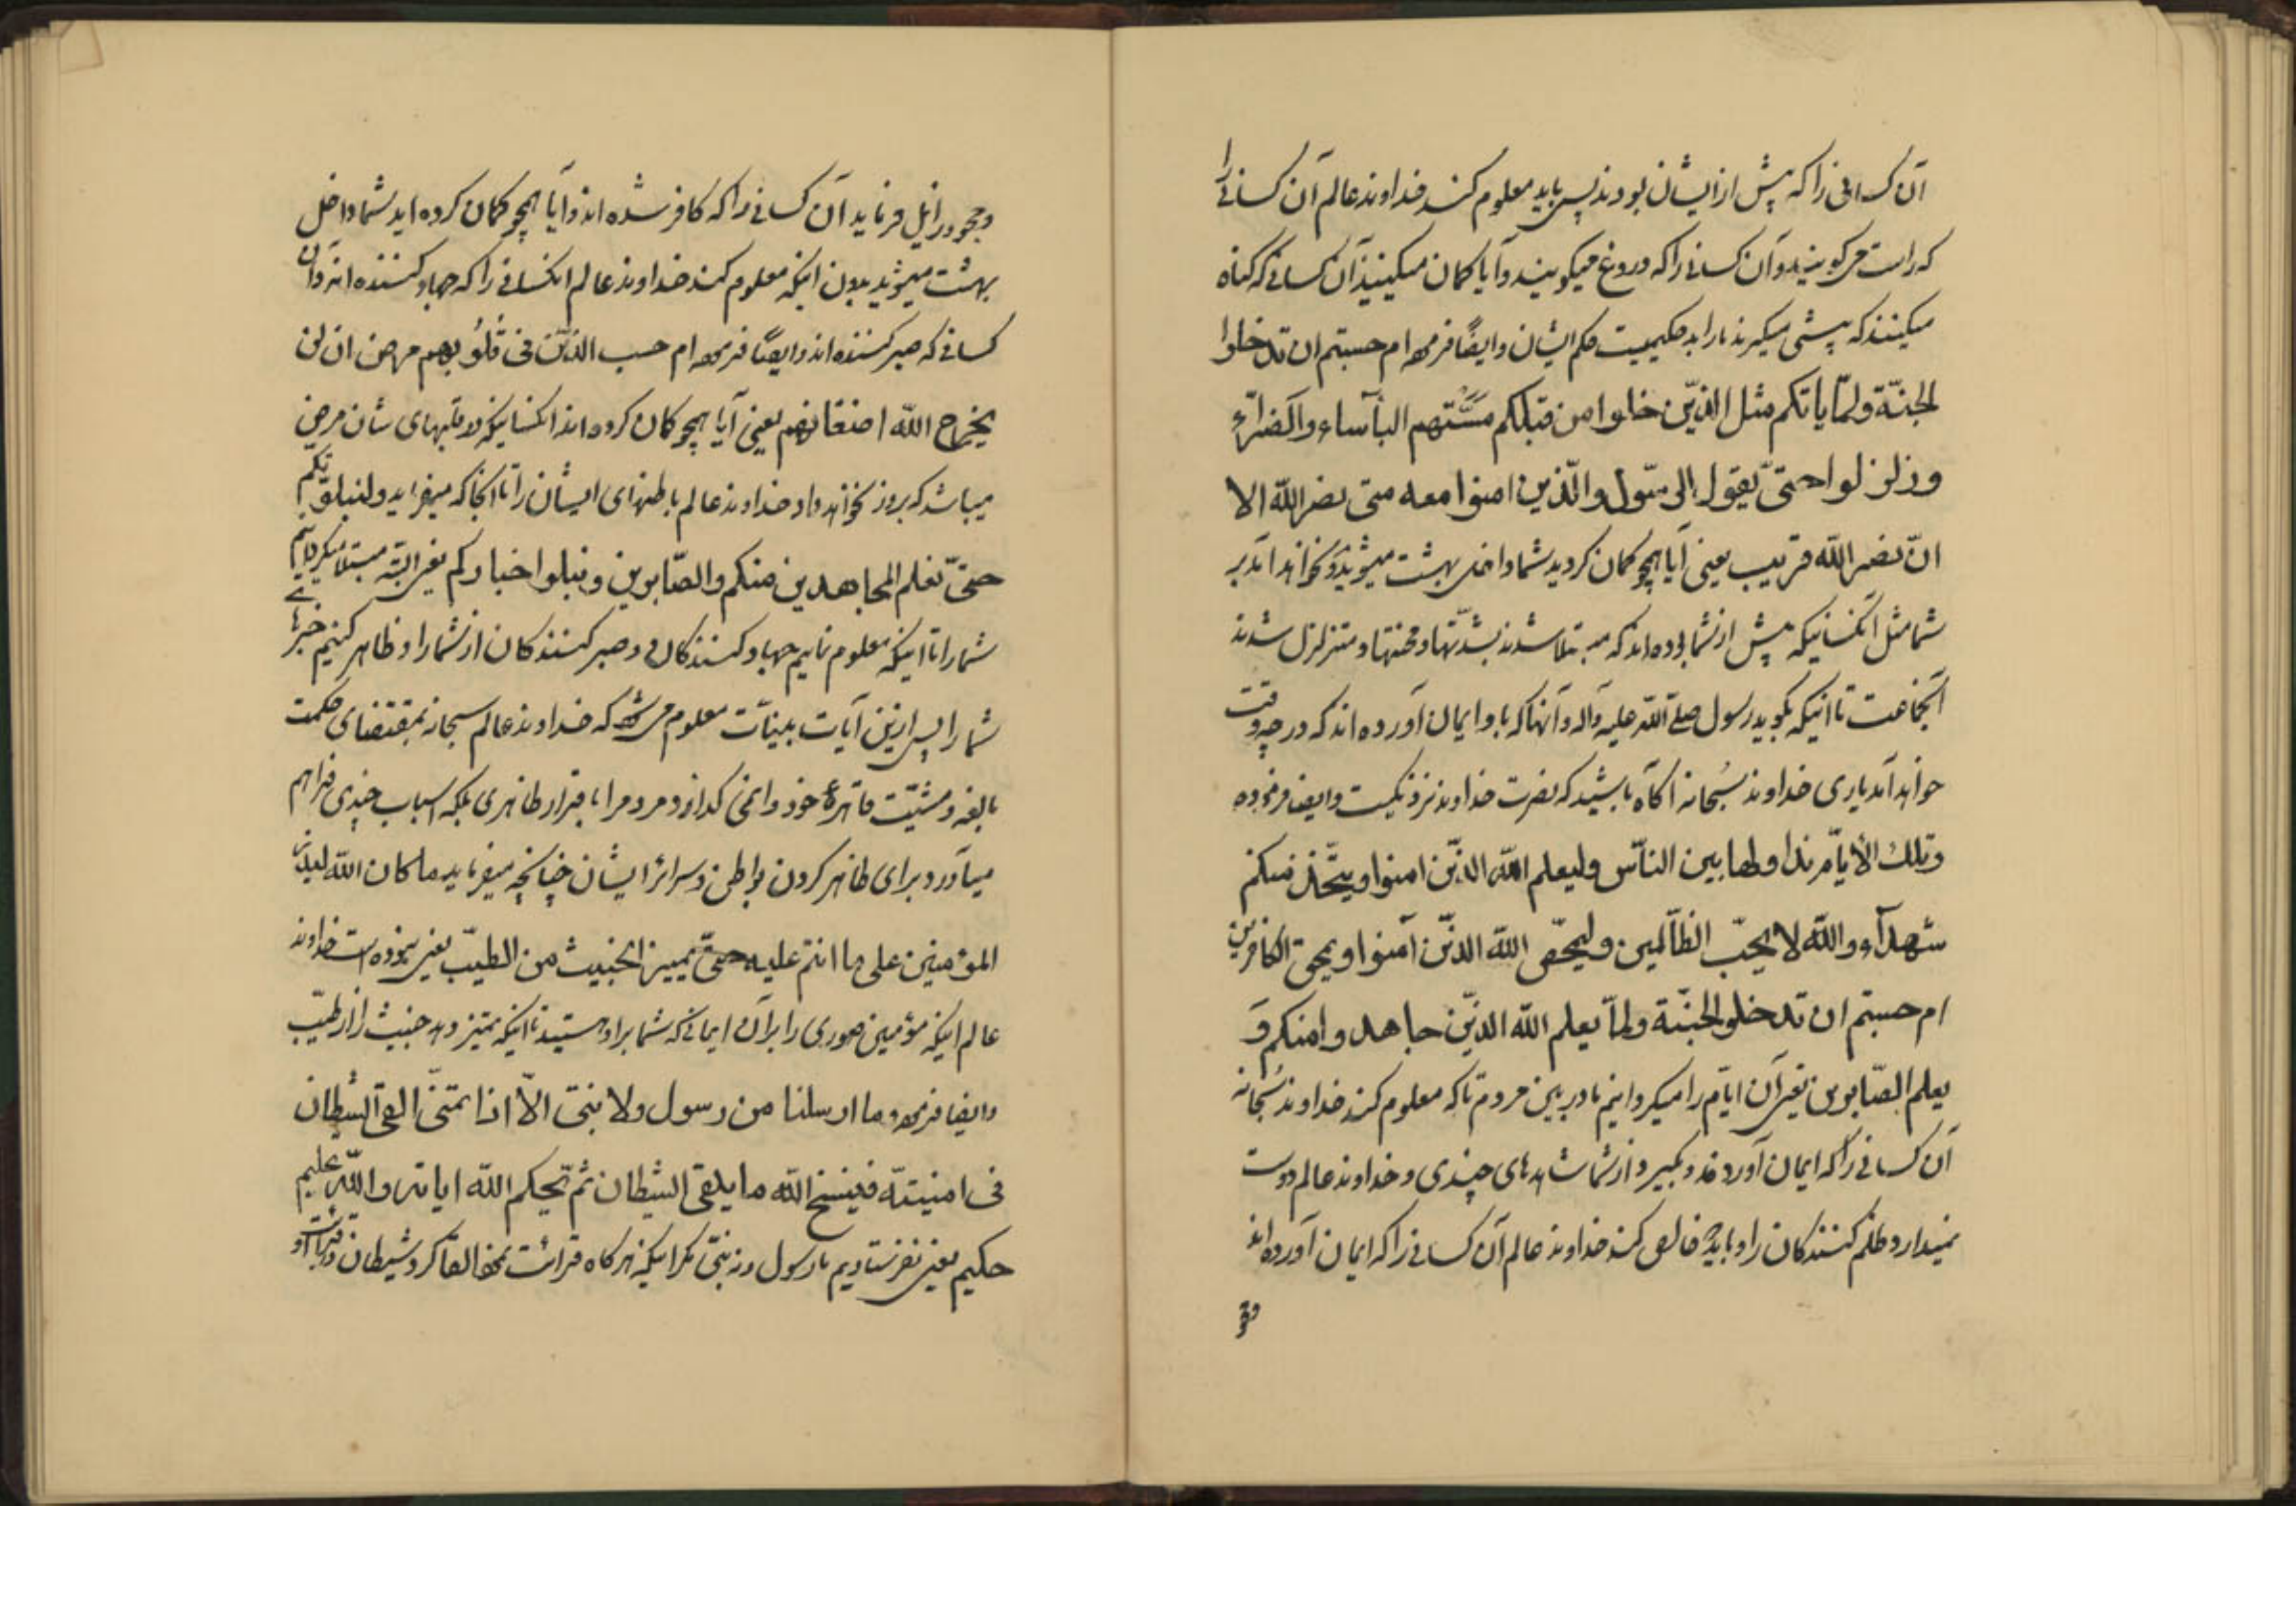 آن کسانی را که پیش از ایشان بودند پس باید معلوم کند خداوند عالم آن کسانی را
که راست می‌گویند و آن کسانی را که دروغ میگویند و آیا گمان میکنند آن کسانی که گناه
میکنند که پیشی میگیرند ما را بد حکمیست حکم ایشان و ایضًا فرموده ام حسبتم ان تدخلوا
الجنّة ولمّا یاتکم مثل الذیّن خلوا من قبلکم مَسَّتهم البأساء والضرّاء
وزلزلوا حتیّ یقول الرسّول والّذین امنوا معه متی نصر الله الا
انّ نصر الله قریب یعنی آیا همچو گمان کردید شما داخل بهشت میشوید و نخواهد آمد بر
شما مثل آنکسانیکه پیش از شما بوده‌اند که مبتلا شدند بشدّتها و محنتها و متزلزل شدند
آنجماعت تا اینکه بگوید رسول صلّی الله علیه وآله و آنها که باو ایمان آورده اند که در چه وقت
خواهد آمد یاری خداوند سُبحانه آگاه باشید که نصرت خداوند نزدیکست و ایضا فرموده
وتلك الأیاّم نداولها بین الناّس ولیعلم الله الذیّن امنوا ویتّخذ منکم
شهدآء والله لا یحبّ الظاّلمین ولیمحّص الله الذیّن آمنوا ویمحق الکافرین
ام حسبتم ان تدخلوا الجنّة ولماّ یعلم الله الذیّن جاهدوا منکم وَ
یعلم الصّابرین یعنی آن ایّام را میگردانیم ما در بین مردم تا که معلوم کند خداوند سُبحانه
آن کسانی را که ایمان آوردند و بگیرد از شما شاهدهای چندی و خداوند عالم دوست
نمیدارد ظلم کنندگان را و باید خالص کند خداوند عالم آن کسانی را که ایمان آورده‌اند
ومحو
ومحو و زایل فرماید آن کسانی را که کافر شده اند و آیا همچو گمان کرده اید شما داخل
بهشت میشوید بدون اینکه معلوم کند خداوند عالم آنکسانی را که جهاد کننده اند و آن
کسانی که صبر کننده اند و ایضًا فرموده ام حسب الذیّن فی قُلُوبهم مرض ان لن
یخرج الله اضغانهم یعنی آیا همچو گمان کرده اند آنکسانیکه در قلبهای شان مرض
میباشد که بروز نخواهد داد خداوند عالم باطنهای ایشان را تا آنجا که میفرماید ولنبلونّکم
حتیّ نعلم المجاهدین منکم والصّابرین ونبلوا اخبارکم یعنی البتّه مبتلا میگردانیم
شما را تا اینکه معلوم نماییم جهاد کنندگان و صبر کنندگان از شما را و ظاهر کنیم خبرهای
شما را پس از این آیات بینّات معلوم می‌شود که خداوند عالم سبحانه بمقتضای حکمت
بالغه و مشیّت قاهرهٔ خود وانمی گذارد مردم را با قرار ظاهری بلکه اسباب چندی فراهم
میآورد برای ظاهر کردن بواطن و سرائر ایشان چنانچه میفرماید ما کان الله لیذر
المؤمنین علی ما انتم علیه حتیّ یمیز الخبیث من الطیّب یعنی نبوده است خداوند
عالم اینکه مؤمنین صوری را بر آن ایمانی که شما بر او هستید تا اینکه تمیز دهد خبیث را از طیّب
و ایضا فرموده وما ارسلنا من رسول ولا نبیّ الاّ اذا تمنیّ القی الشیطان
فی امنیتّه فینسخ الله ما یلقی الشیطان ثمّ یحکم الله ایاته والله علیم
حکیم یعنی نفرستادیم ما رسول و نه نبیّ مگر اینکه هرگاه قرائت نمود القا کرد شیطان در قرائت او